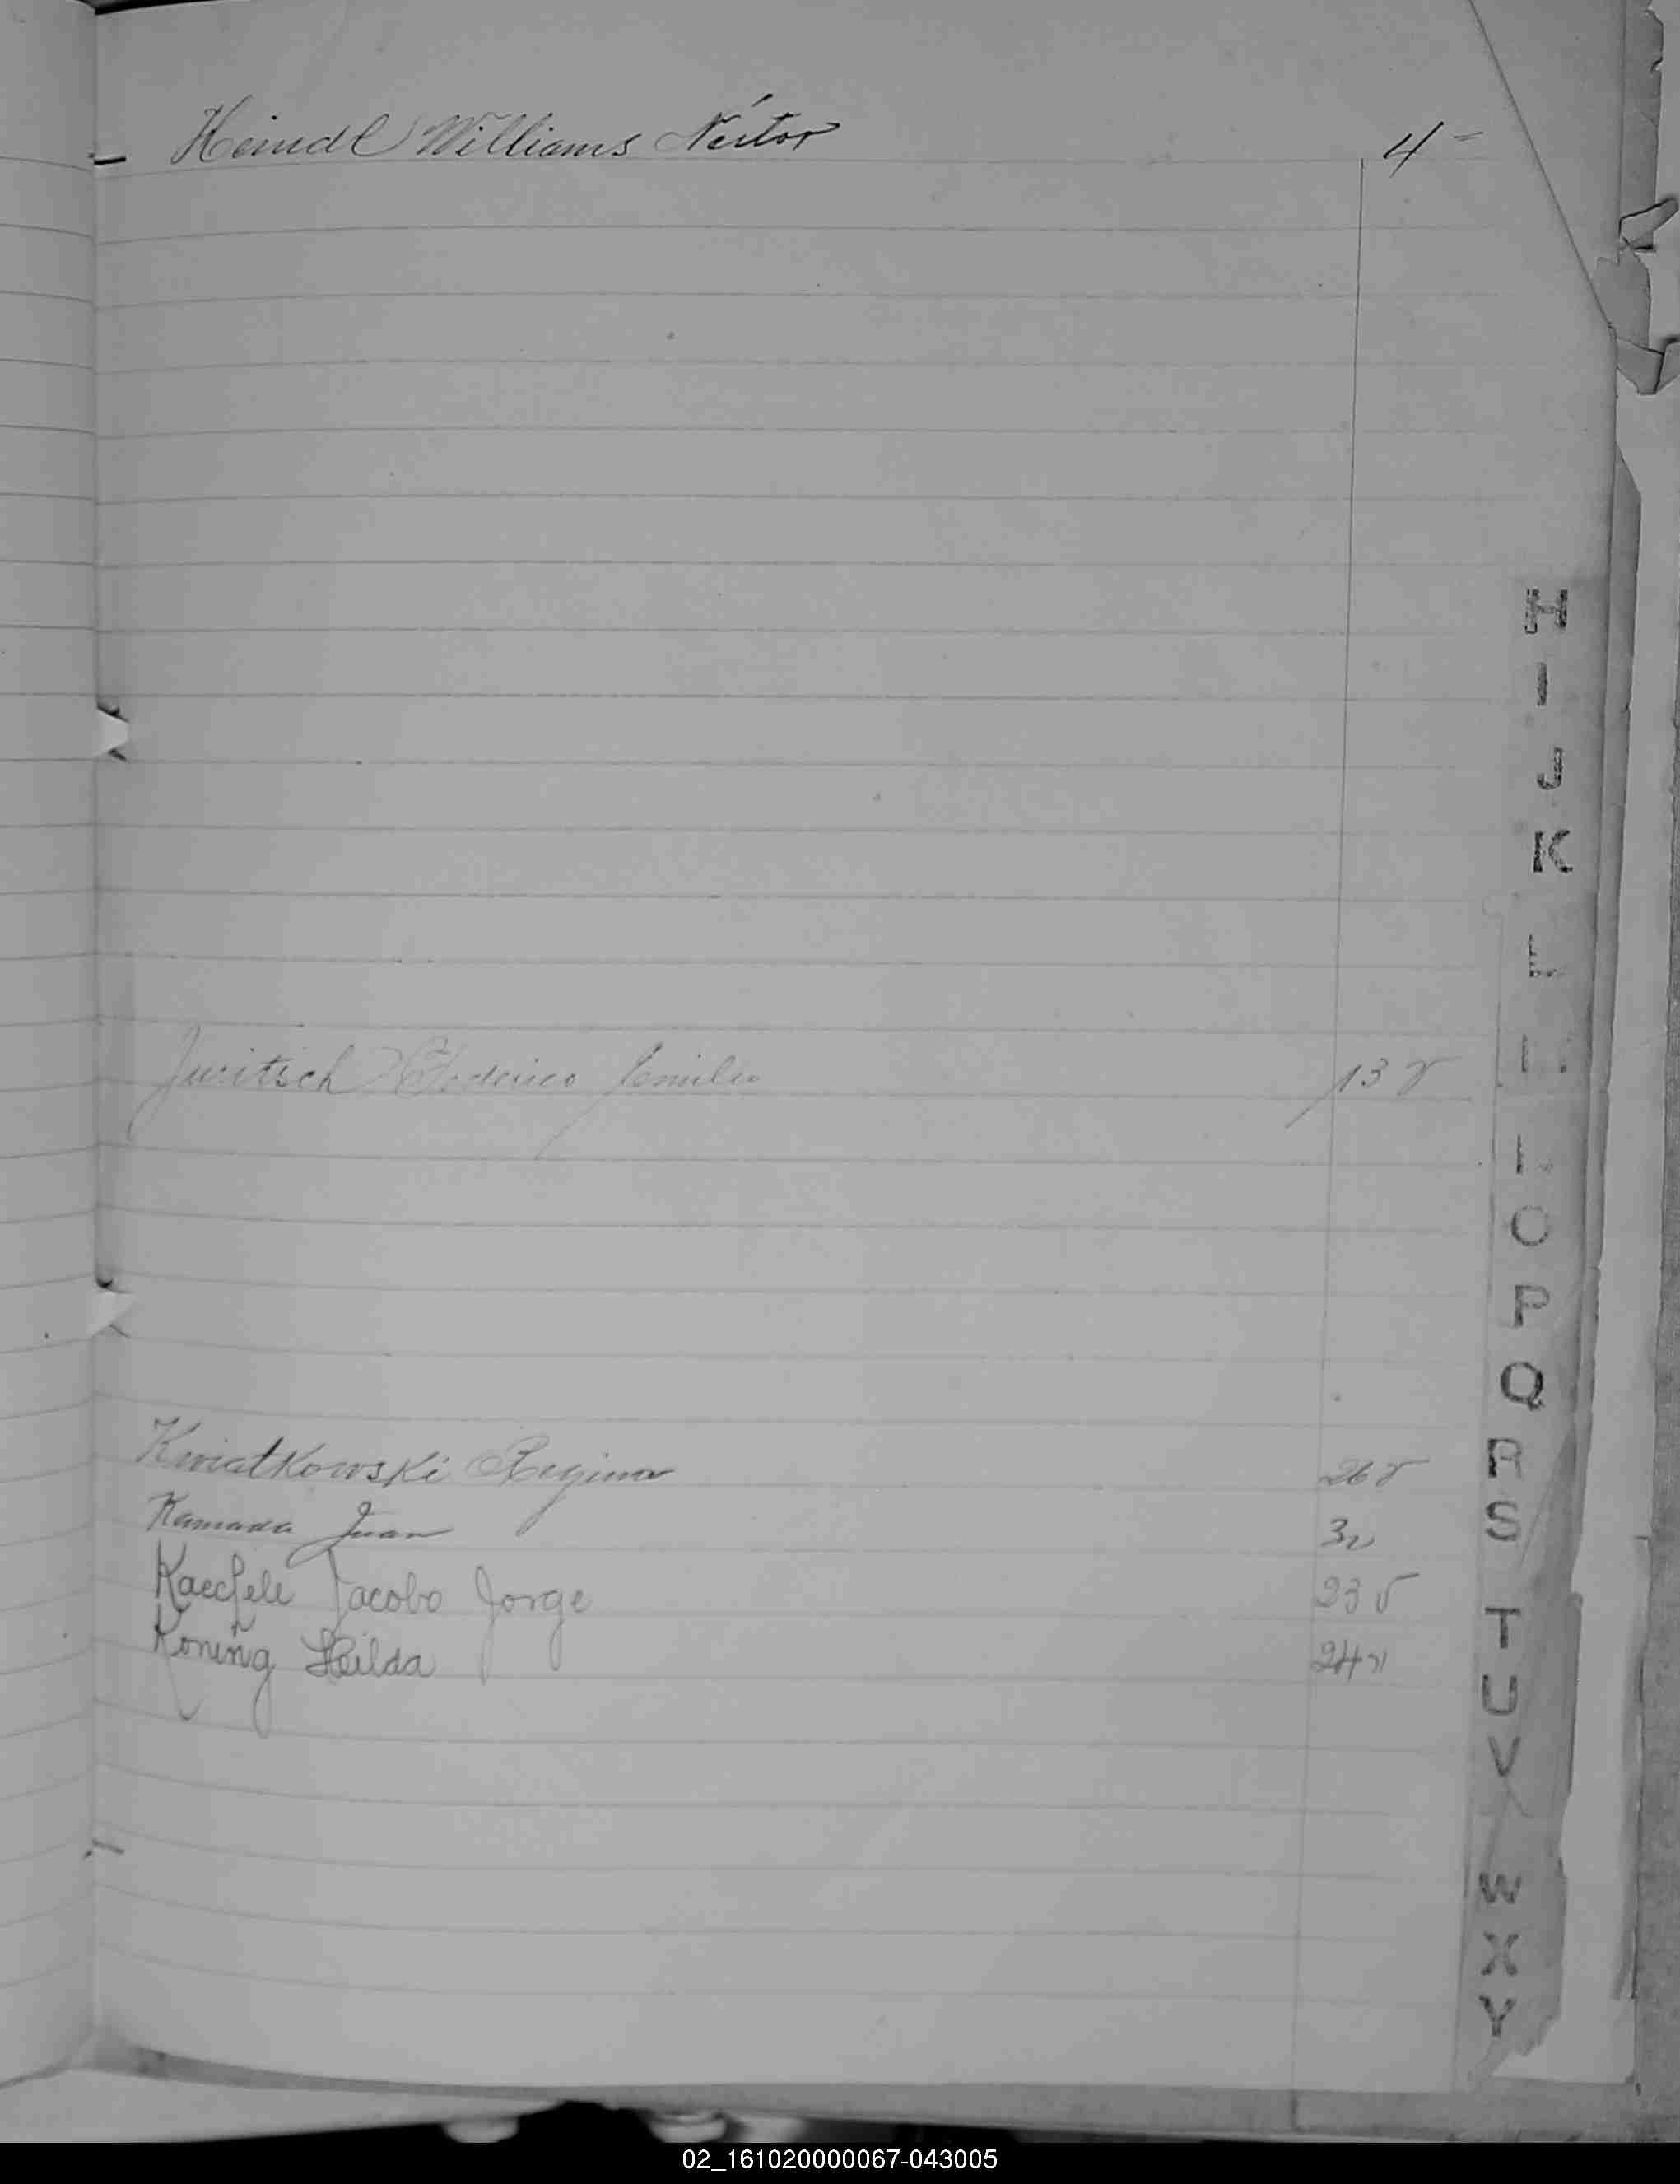 Heindl Williams Néstor 4
Juritsch Federico Emilio 13 v
Kwiatkowski Regina 26 v
Kamada Juan 3v
Kaechele Jacobo Jorge 23 v
Koning Hilda 24 v
H
I
J
K
L
O
P
Q
R
S
T
U
V
W
X
Y
02_161020000067-043005